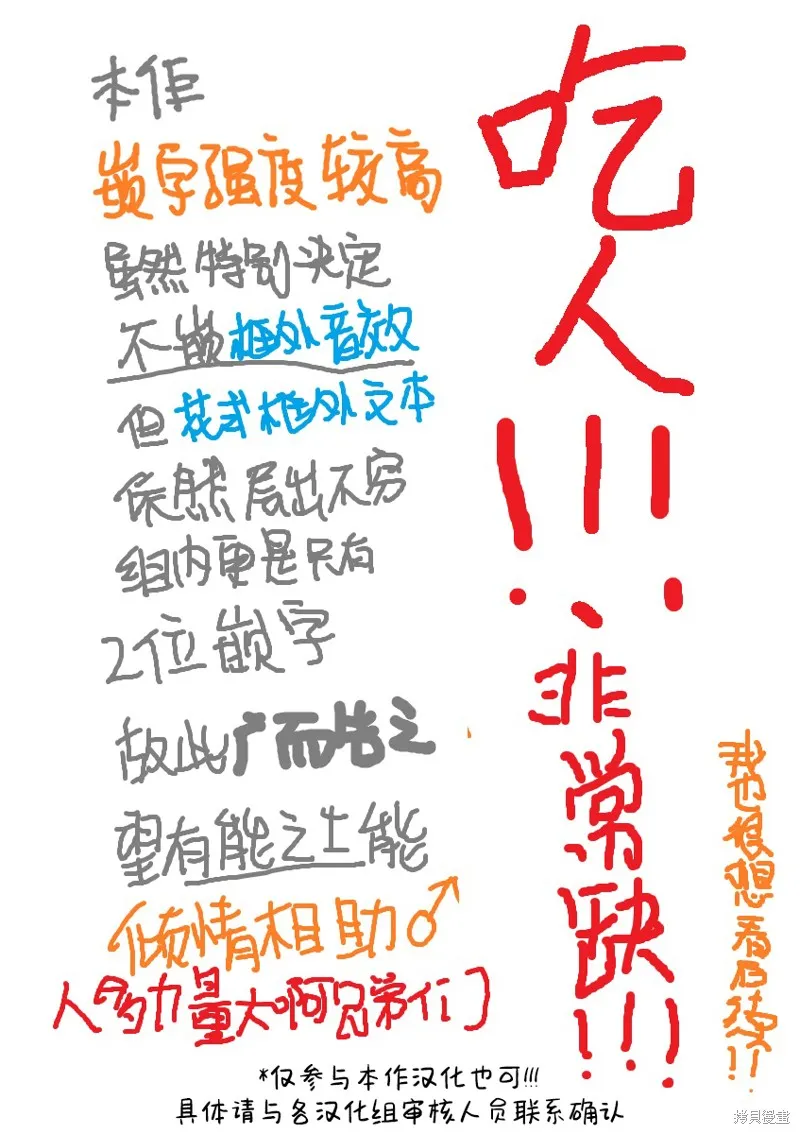 本作
嵌字强度较高
虽然特别决定
不嵌框外音效
但花式框外文本
依然层出不穷
组内更是只有
2位嵌字
故此广而告之
望有能之士能
倾情相助♂
人多力量大啊兄弟们
吃人!!!
非常缺!!!
我也很想看后续!!
*仅参与本作汉化也可!!!
具体请与各汉化组审核人员联系确认
拷貝漫畫